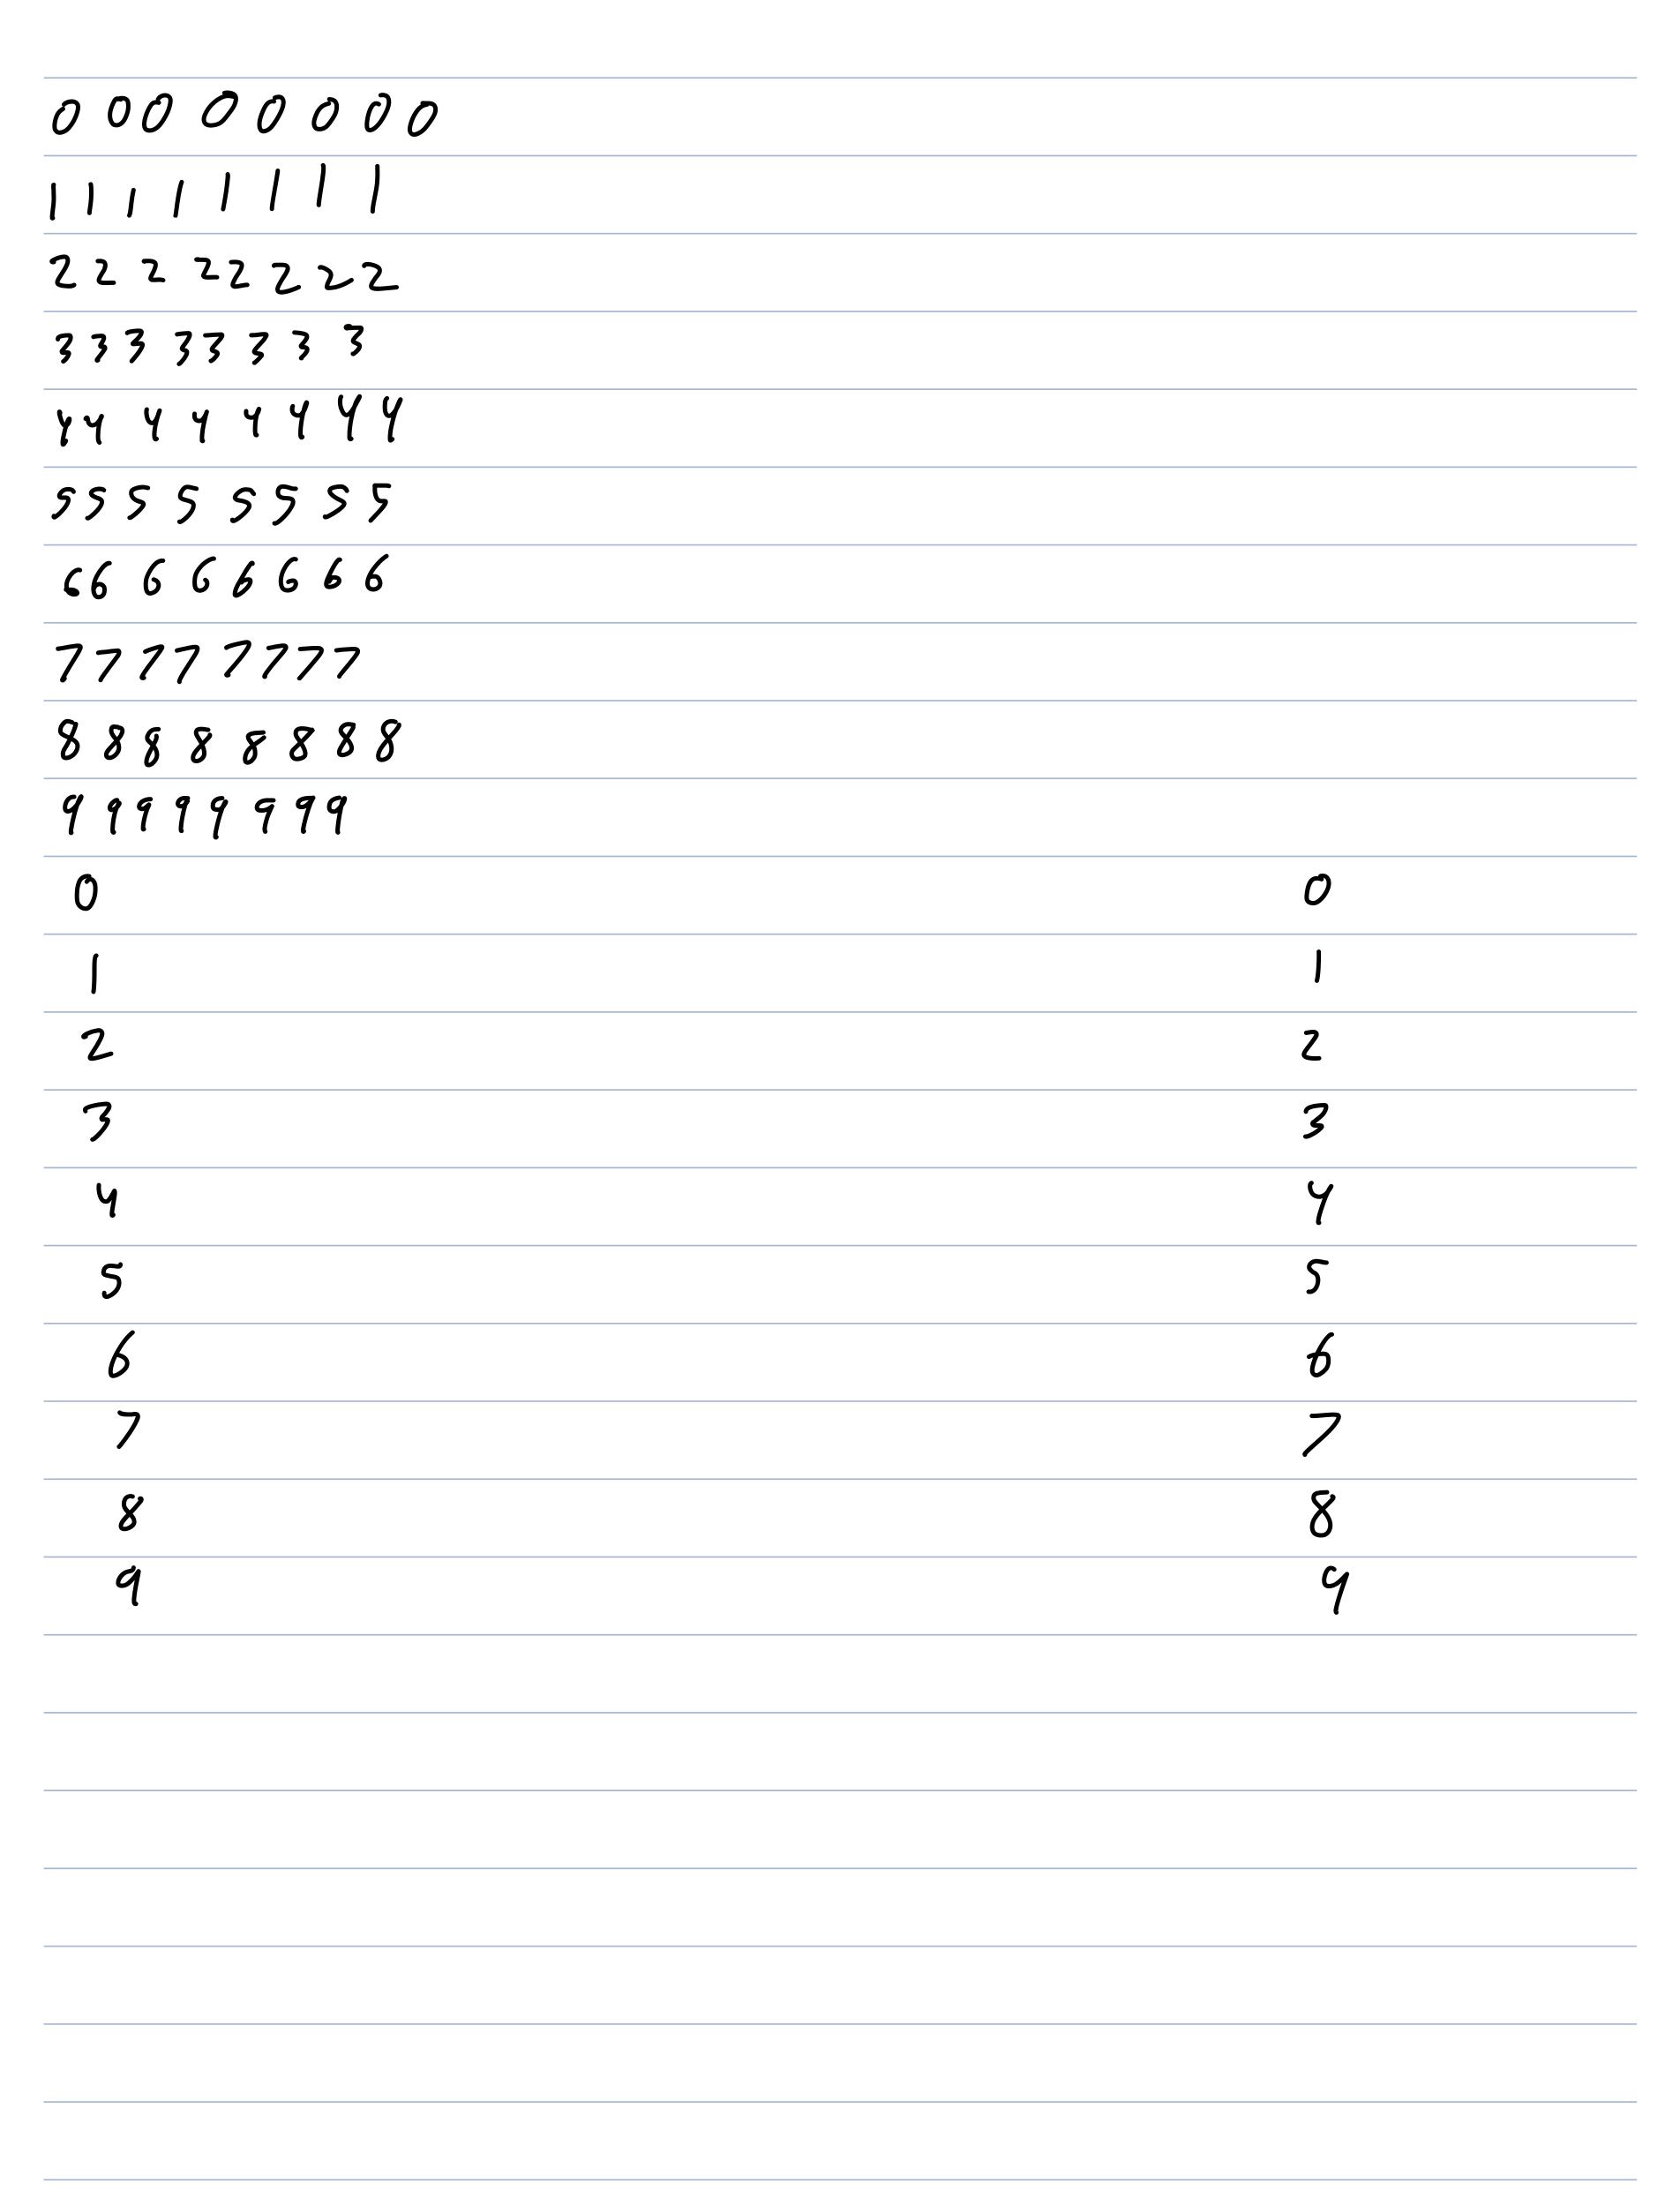 0 0 0 0 0 0 0 0
1 1 1 1 1 1 1 1
2 2 2 2 2 2 2 2
3 3 3 3 3 3 3 3
4 4 4 4 4 4 4 4
5 5 5 5 5 5 5 5
6 6 6 6 6 6 6 6
7 7 7 7 7 7 7 7
8 8 8 8 8 8 8 8
9 9 9 9 9 9 9 9
0 0
1 1
2 2
3 3
4 4
5 5
6 6
7 7
8 8
9 9